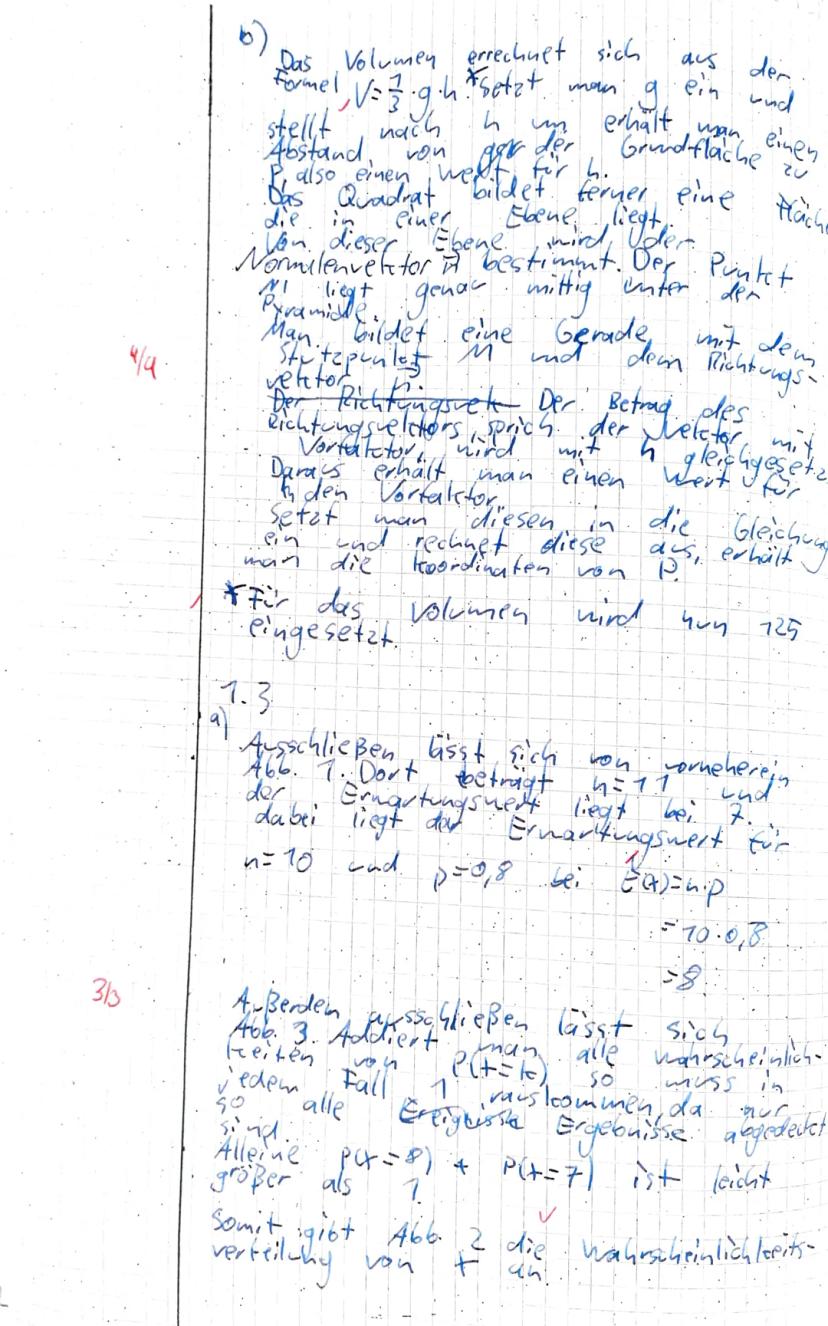 b)
Das Volumen errechnet sich aus der
Formel V=1/3·g·h.* Setzt man g ein und
stellt nach h um erhält man einen
Abstand von der Grundfläche zu
P, also einen Wert für h.
Das Quadrat bildet ferner eine Fläche
die in einer Ebene liegt.
Von dieser Ebene wird der
Normalenvektor n⃗ bestimmt. Der Punkt
M liegt genau mittig unter der
Pyramide.
Man bildet eine Gerade mit dem
Stützpunkt M und dem Richtungs-
vektor n⃗.
4/4
Der Richtungsvek Der Betrag des
Richtungsvektors, sprich der Vektor mit
Vorfaktor, wird mit h gleichgesetz
Daraus erhält man einen Wert für
den Vorfaktor.
Setzt man diesen in die Gleichung
ein und rechnet diese aus, erhält
man die Koordinaten von P.
*Für das Volumen wird nun 125
eingesetzt.
1.3
a)
Ausschließen lässt sich von vorneherein
Abb. 1. Dort beträgt n=11 und
der Erwartungswert liegt bei 7.
dabei liegt der Erwartungswert für
n=10 und p=0,8 bei E(x)=n·p
=10·0,8
=8
3/3
Außerdem ausschließen lässt sich
Abb. 3. Addiert man alle Wahrscheinlich-
keiten von P(x=k) so muss in
jedem Fall 1 rauskommen, da nur
so alle Ereignisse Ergebnisse abgedeckt
sind.
Alleine P(x=8) + P(x=7) ist leicht
größer als 1.
Somit gibt Abb. 2 die Wahrscheinlichkeits-
verteilung von x an.